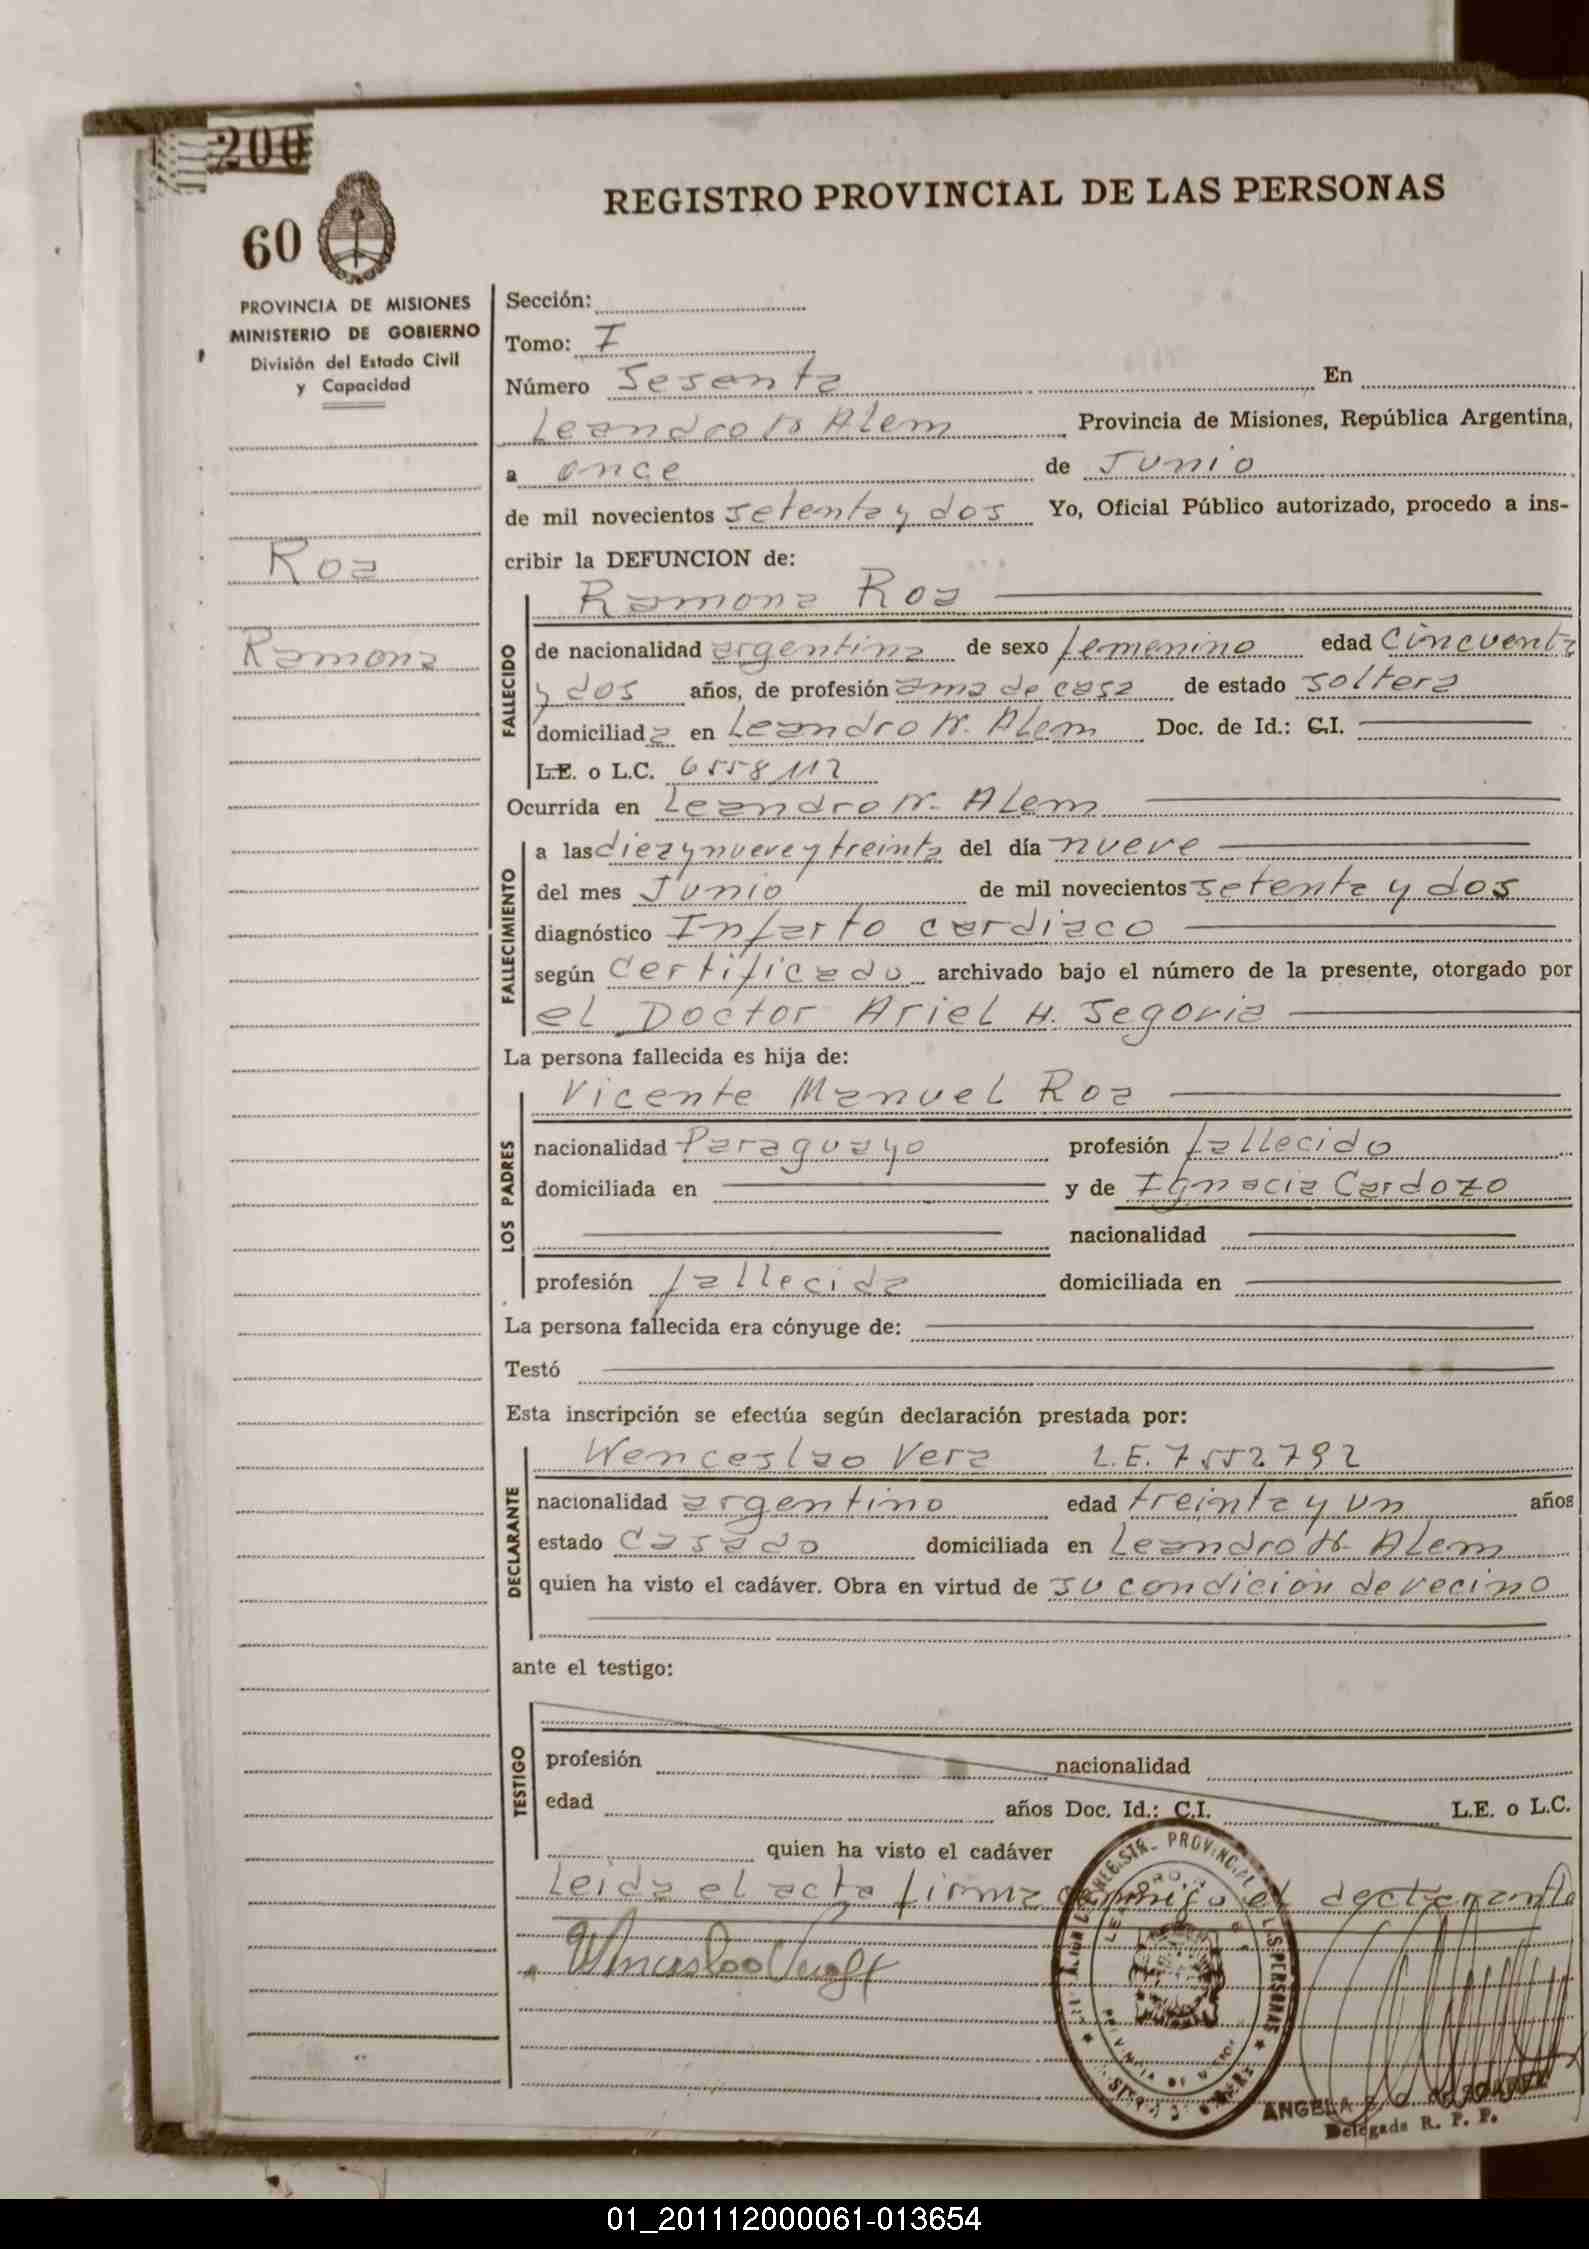 200
60
REGISTRO PROVINCIAL DE LAS PERSONAS
PROVINCIA DE MISIONES
MINISTERIO DE GOBIERNO
División del Estado Civil
y Capacidad
Roa
Ramona
Sección:
Tomo: I
Número Sesenta En
Leandro N Alem Provincia de Misiones, República Argentina,
a once de Junio
de mil novecientos setenta y dos Yo, Oficial Público autorizado, procedo a ins-
cribir la DEFUNCION de:
Ramona Roa
FALLECIDO
de nacionalidad argentina de sexo femenino edad cincuenta
y dos años, de profesión ama de casa de estado soltera
domiciliada en Leandro N. Alem Doc. de Id.: C.I.
L.E. o L.C. 6558112
Ocurrida en Leandro N. Alem
FALLECIMIENTO
a las diez y nueve y treinta del día nueve
del mes Junio de mil novecientos setenta y dos
diagnóstico Infarto cardiaco
según Certificado archivado bajo el número de la presente, otorgado por
el Doctor Ariel H. Segovia
La persona fallecida es hija de:
Vicente Manuel Roa
LOS PADRES
nacionalidad Paraguayo profesión fallecido
domiciliada en y de Ignacia Cardozo
nacionalidad
profesión fallecida domiciliada en
La persona fallecida era cónyuge de:
Testó
Esta inscripción se efectúa según declaración prestada por:
Wenceslao Vera L.E. 7552792
DECLARANTE
nacionalidad argentino edad treinta y un años
estado Casado domiciliada en Leandro N. Alem
quien ha visto el cadáver. Obra en virtud de su condición de vecino
ante el testigo:
TESTIGO
profesión nacionalidad
edad años Doc. Id.: C.I. L.E. o L.C.
quien ha visto el cadáver
Leida el acta firma conmigo el declarante
ANGELA
Delegada R. P. P.
01_201112000061-013654